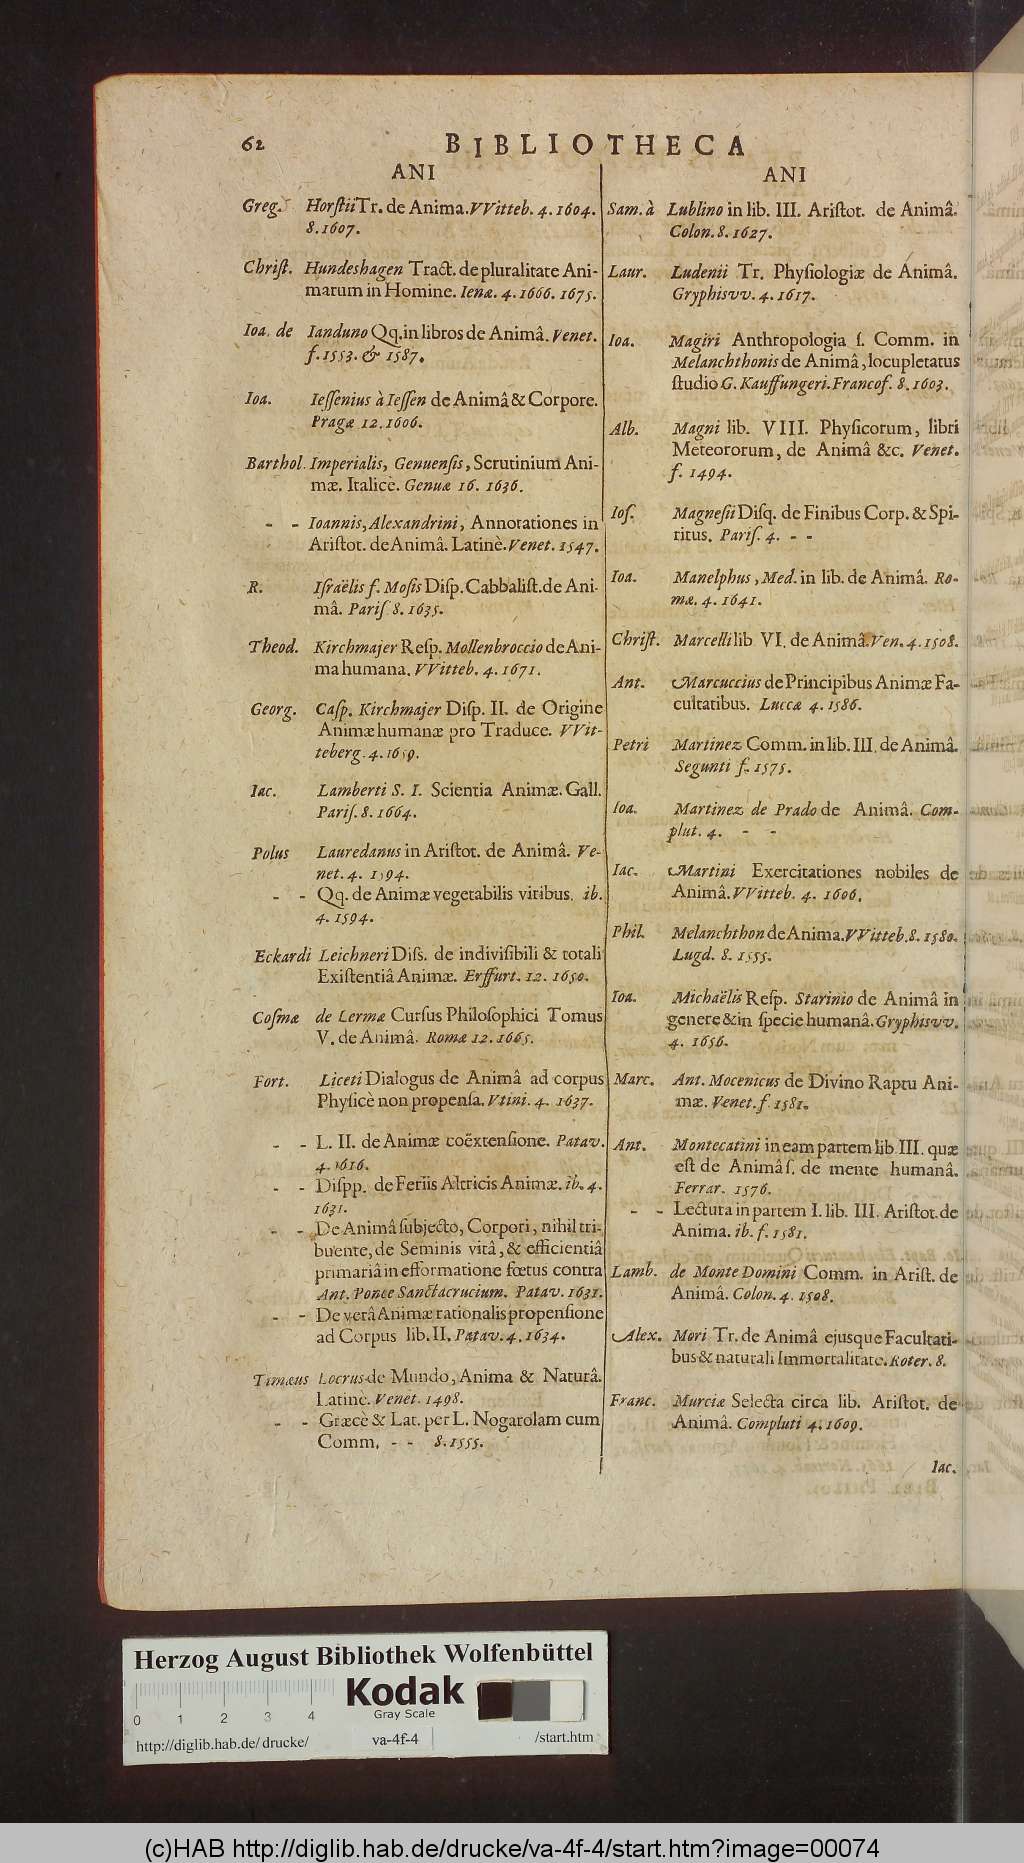 62
BIBLIOTHECA
ANI
Greg. Horſtii Tr. de Anima. VVitteb. 4. 1604.
8. 1607.
Chriſt. Hundeshagen Tract. de pluralitate Ani-
marum in Homine. Ienæ. 4. 1666. 1675.
Ioa. de Ianduno Qq. in libros de Animâ. Venet.
f. 1553. & 1587.
Ioa. Ieſſenius à Ieſſen de Animâ & Corpore.
Pragæ 12. 1606.
Barthol. Imperialis, Genuenſis, Scrutinium Ani-
mæ. Italicè. Genuæ 16. 1636.
- - Ioannis, Alexandrini, Annotationes in
Ariſtot. de Animâ. Latinè. Venet. 1547.
R. Iſraëlis f. Moſis Diſp. Cabbaliſt. de Ani-
mâ. Pariſ. 8. 1635.
Theod. Kirchmajer Reſp. Mollenbroccio de Ani-
ma humana. VVitteb. 4. 1671.
Georg. Caſp. Kirchmajer Diſp. II. de Origine
Animæ humanæ pro Traduce. VVit-
teberg. 4. 1659.
Iac. Lamberti S. I. Scientia Animæ. Gall.
Pariſ. 8. 1664.
Polus Lauredanus in Ariſtot. de Animâ. Ve-
net. 4. 1594.
- - Qq. de Animæ vegetabilis viribus. ib.
4. 1594.
Eckardi Leichneri Diſs. de indiviſibili & totali
Exiſtentiâ Animæ. Erffurt. 12. 1650.
Coſmæ de Lermæ Curſus Philoſophici Tomus
V. de Animâ. Romæ 12. 1665.
Fort. Liceti Dialogus de Animâ ad corpus
Phyſicè non propenſa. Vtini. 4. 1637.
- - L. II. de Animæ coëxtenſione. Patav.
4. 1616.
- - Diſpp. de Feriis Altricis Animæ. ib. 4.
1631.
- - De Animâ ſubjecto, Corpori, nihil tri-
buente, de Seminis vitâ, & efficientiâ
primariâ in efformatione fœtus contra
Ant. Ponce Sanctacrucium. Patav. 1631.
- - De verâ Animæ rationalis propenſione
ad Corpus lib. II. Patav. 4. 1634.
Timæus Locrus de Mundo, Anima & Naturâ.
Latinè. Venet. 1498.
- - Græcè & Lat. per L. Nogarolam cum
Comm. - - 8. 1555.
ANI
Sam. à Lublino in lib. III. Ariſtot. de Animâ.
Colon. 8. 1627.
Laur. Ludenii Tr. Phyſiologiæ de Animâ.
Gryphisvv. 4. 1617.
Ioa. Magiri Anthropologia ſ. Comm. in
Melanchthonis de Animâ, locupletatus
ſtudio G. Kauffungeri. Francof. 8. 1603.
Alb. Magni lib. VIII. Phyſicorum, libri
Meteororum, de Animâ &c. Venet.
f. 1494.
Ioſ. Magneſii Diſq. de Finibus Corp. & Spi-
ritus. Pariſ. 4. - -
Ioa. Manelphus, Med. in lib. de Animâ. Ro-
mæ. 4. 1641.
Chriſt. Marcelli lib VI. de Animâ. Ven. 4. 1508.
Ant. Marcuccius de Principibus Animæ Fa-
cultatibus. Luccæ 4. 1586.
Petri Martinez Comm. in lib. III. de Animâ.
Segunti f. 1575.
Ioa. Martinez de Prado de Animâ. Com-
plut. 4. - -
Iac. Martini Exercitationes nobiles de
Animâ. VVitteb. 4. 1606.
Phil. Melanchthon de Anima. VVitteb. 8. 1580.
Lugd. 8. 1555.
Ioa. Michaëlis Reſp. Starinio de Animâ in
genere & in ſpecie humanâ. Gryphisvv.
4. 1656.
Marc. Ant. Mocenicus de Divino Raptu Ani-
mæ. Venet. f 1581.
Ant. Montecatini in eam partem lib III. quæ
eſt de Animâ ſ. de mente humanâ.
Ferrar. 1576.
- - Lectura in partem I. lib. III. Ariſtot. de
Anima. ib. f. 1581.
Lamb. de Monte Domini Comm. in Ariſt. de
Animâ. Colon. 4. 1508.
Alex. Mori Tr. de Animâ ejusque Facultati-
bus & naturali Immortalitate. Roter. 8.
Franc. Murciæ Selecta circa lib. Ariſtot. de
Animâ. Compluti 4. 1609.
Iac.
Herzog August Bibliothek Wolfenbüttel
Kodak
Gray Scale
0 1 2 3 4
http://diglib.hab.de/drucke/ va-4f-4 /start.htm
(c)HAB http://diglib.hab.de/drucke/va-4f-4/start.htm?image=00074